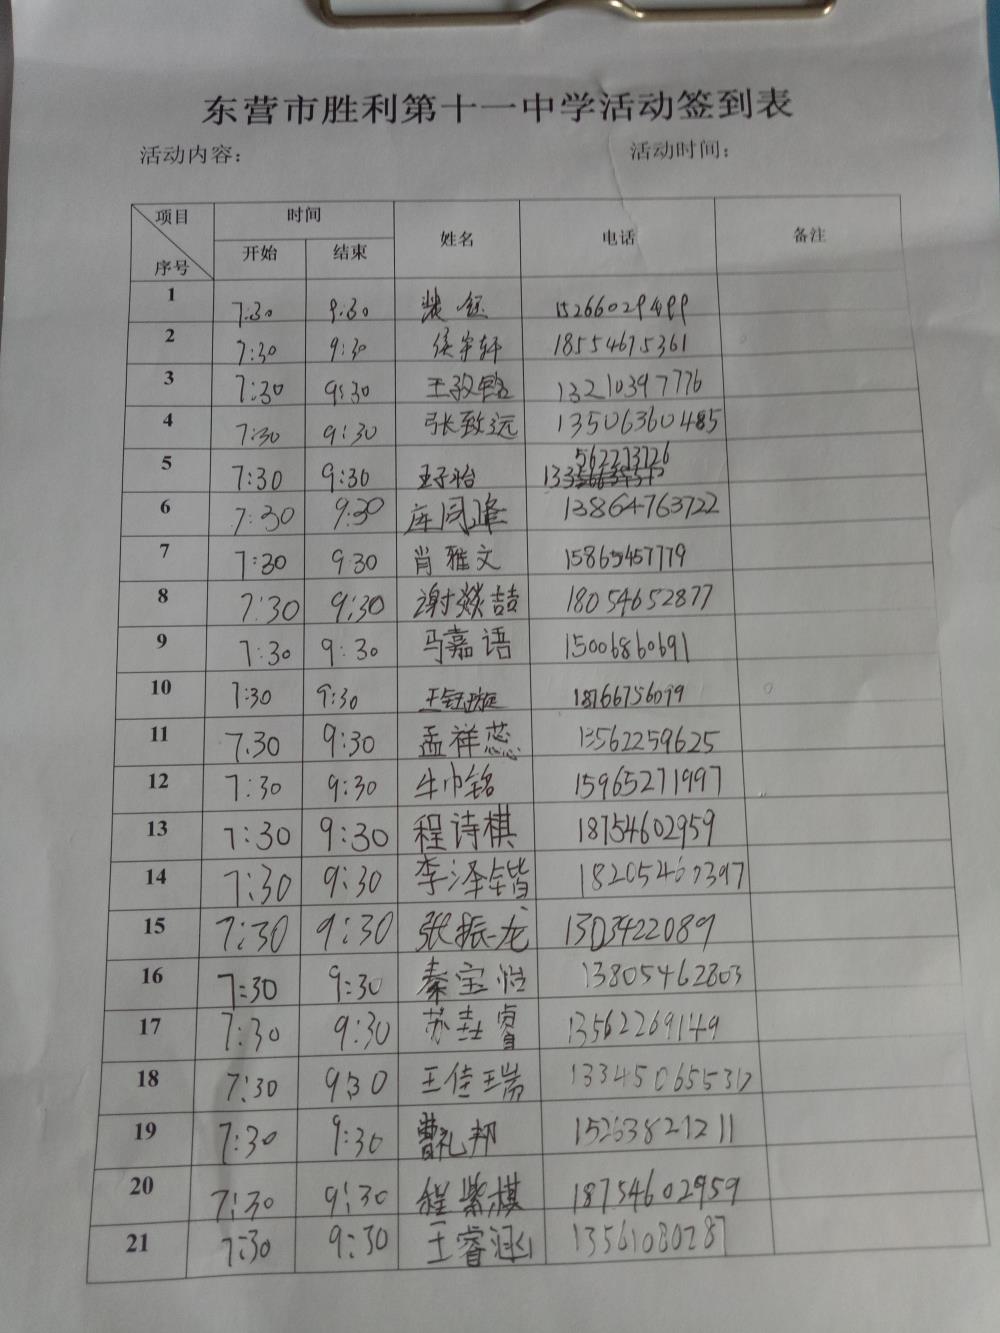 东营市胜利第十一中学活动签到表
活动内容： 活动时间：
项目 序号 时间 姓名 电话 备注
开始 结束
1 7:30 9:30 裴钰
2 7:30 9:30 侯宇轩 18554675361
3 7:30 9:30 13210397776
4 7:30 9:30 张致远 135063600485
5 7:30 9:30 王子怡 562273726
6 7:30 9:30 同峰 13864763722
7 7:30 930 肖雅文 15865457779
8 7:30 9:30 谢燚喆 18054652877
9 7:30 9:30 马嘉语 15006860691
10 7:30 9:30 王钰璇 18766756099
11 7.30 9:30 孟祥蕊 13562259625
12 7:30 9:30 牛巾铭 15965271997
13 7:30 9:30 程诗棋 18754602959
14 7:30 9:30 李泽锴 18205460397
15 7:30 9:30 张振龙 1303422089
16 7:30 9:30 秦宝怡 13805462803
17 7:30 9:30 苏睿 13562269149
18 7:30 9:30 王佳瑞
19 7:30 9:30 曹礼邦 15263821211
20 7:30 9:30 程紫棋 18754602959
21 7:30 9:30 王睿涵 13561080287